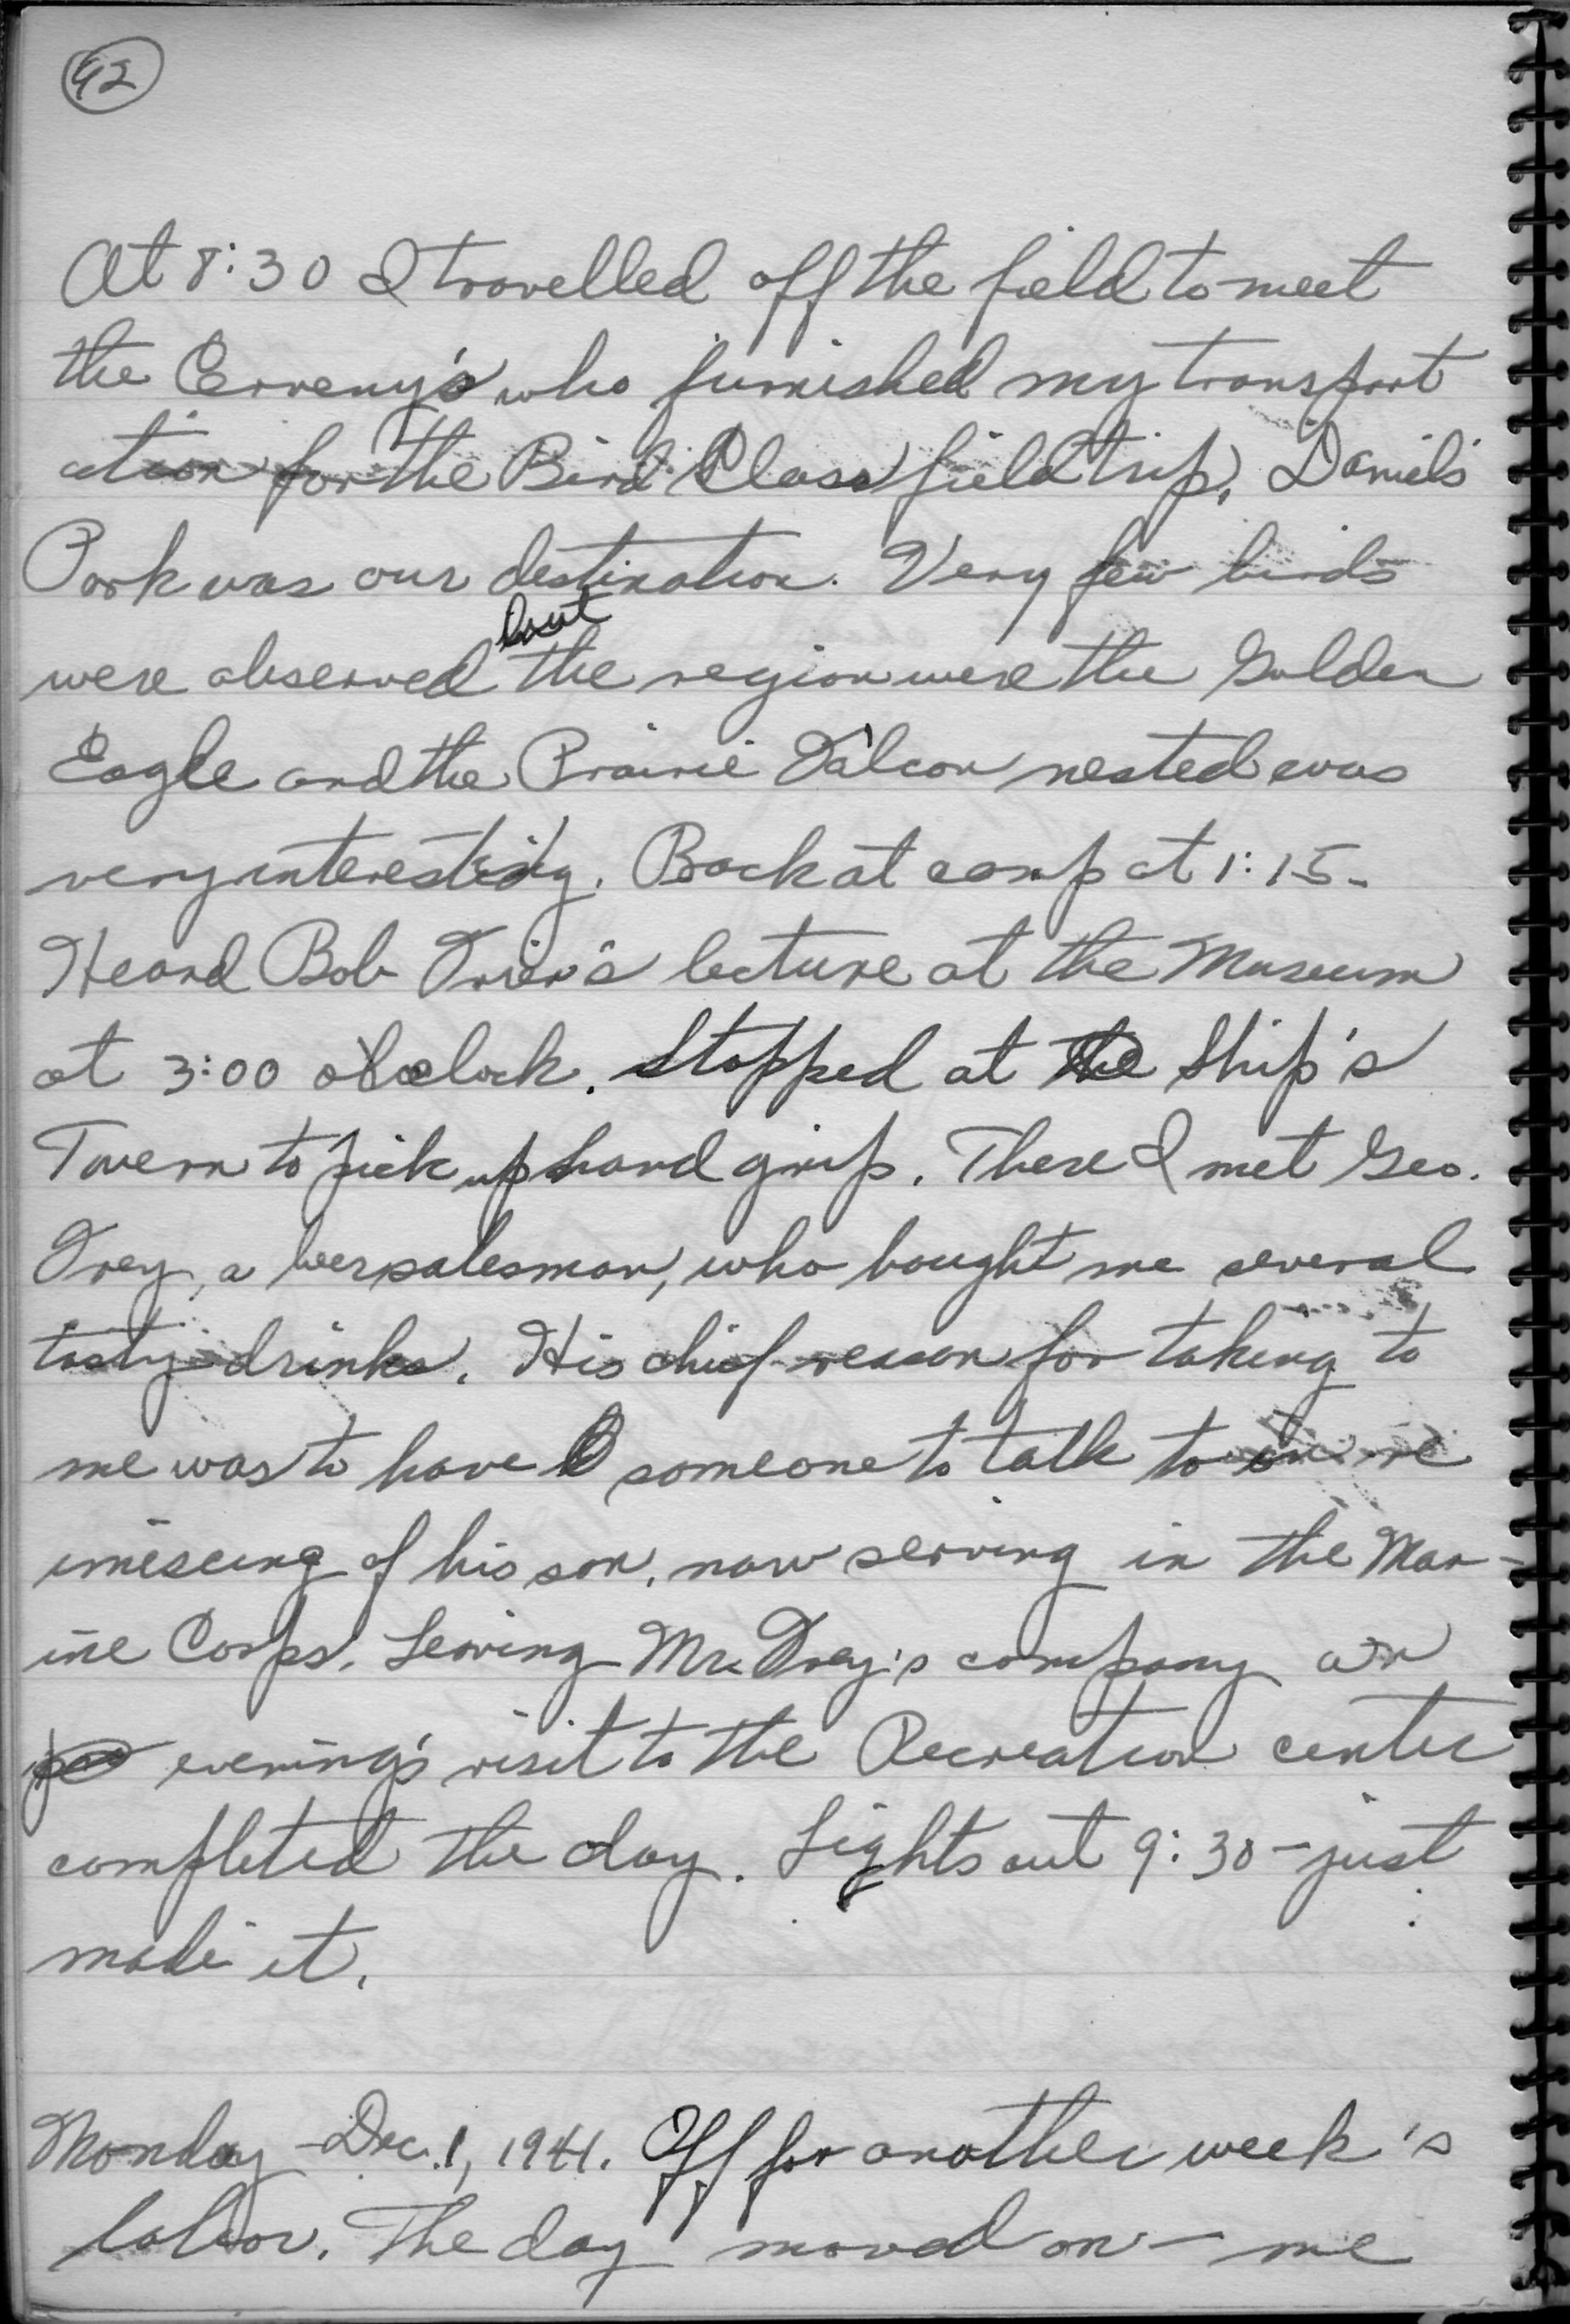 92
At 8:30 I travelled off the field to meet
the Cerveny's who furnished my transport
ation for the Bird Class field trip. Daniels
Park was our destination. Very few birds
but
were observed the region were the Golden
Eagle and the Prairie Falcon nested was
very interesting. Back at camp at 1:15.
Heard Bob Trier's lecture at the Museum
at 3:00 o'clock. Stopped at the Ship's
Tavern to pick up hand grip. There I met Geo.
Frey, a beer salesman, who bought me several
tasty drinks. His chief reason for taking to
me was to have someone to talk to in re
iniscing of his son, now serving in the Mar-
ine Corps. Leaving Mr. Frey's company an
evening's visit to the Recreation center
completed the day. Lights out 9:30 - just
made it.
Monday - Dec. 1, 1941. Off for another week's
labor. The day moved on - me